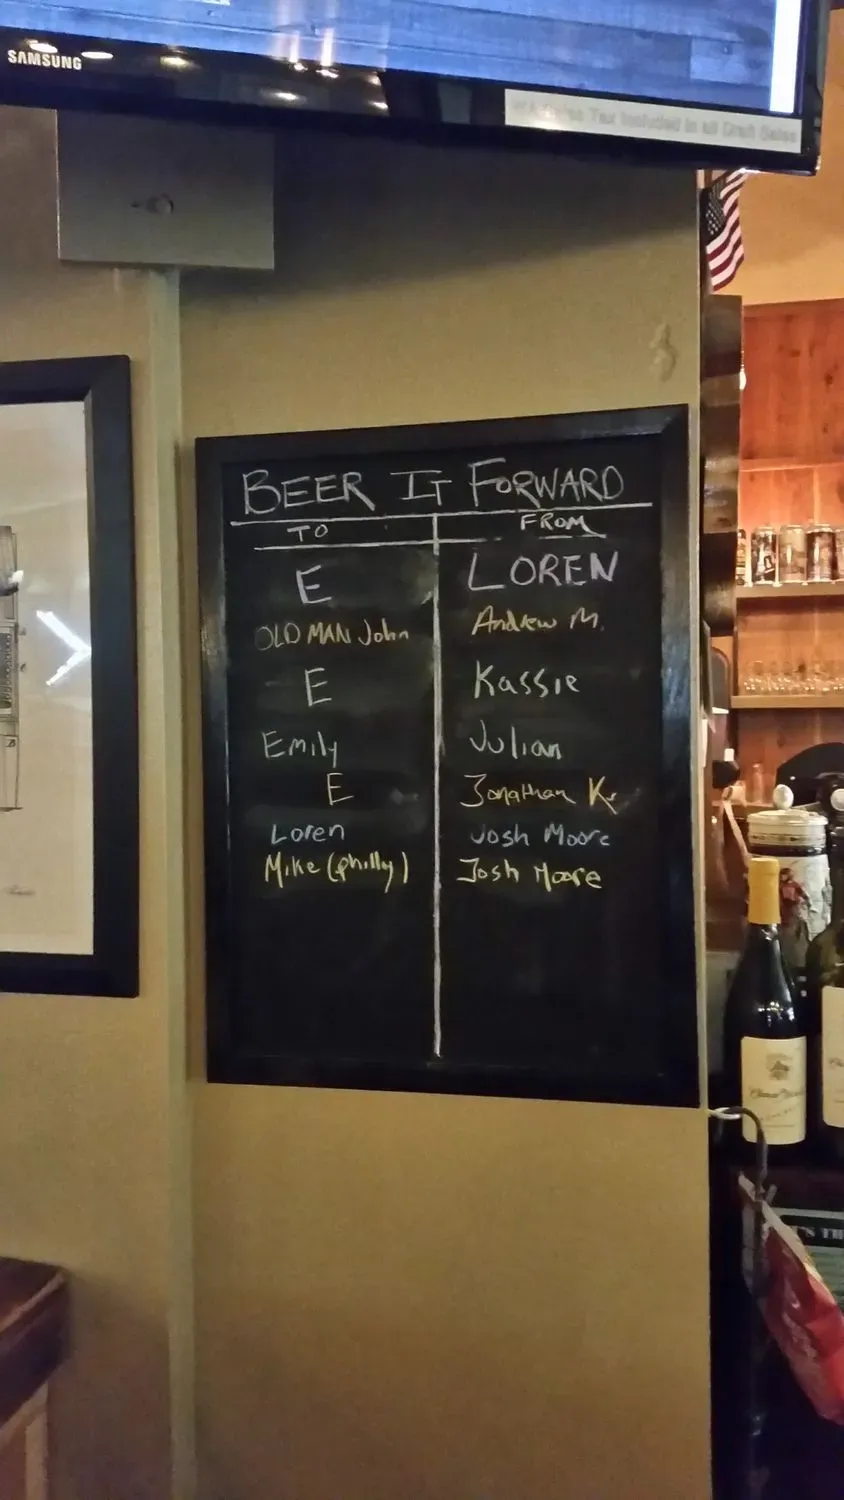 SAMSUNG
Tax Included in all Draft Sales
BEER IT FORWARD
TO FROM
E LOREN
OLD MAN John Andrew M.
E Kassie
Emily Julian
E Jonathan K.
Loren Josh Moore
Mike (philly) Josh Moore